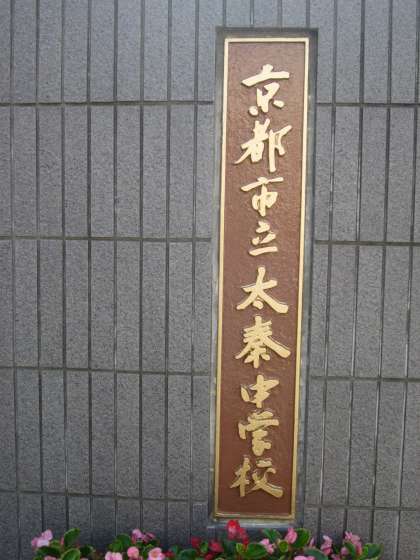 京都市立太秦中学校